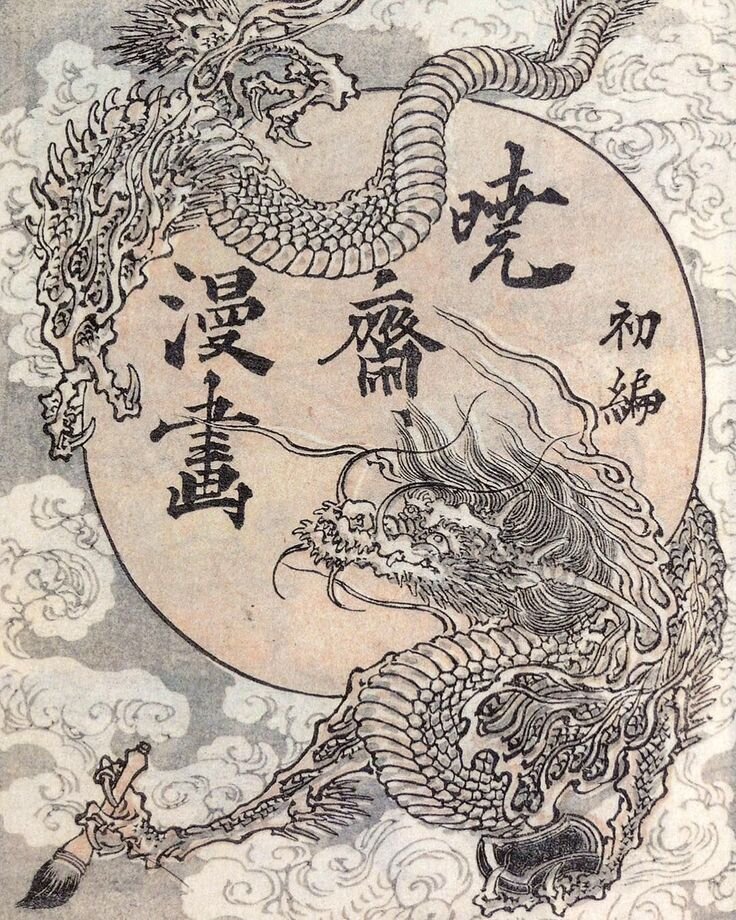 初編
暁齋
漫畫